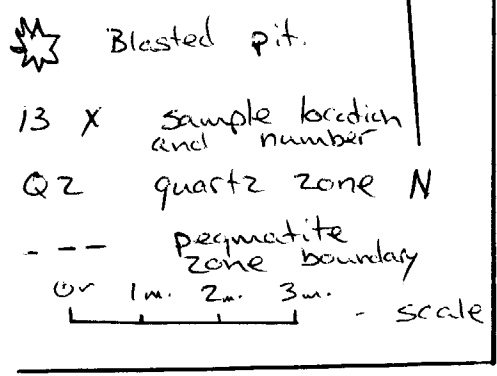 Blasted pit.
13 X sample location
and number
QZ quartz zone N
pegmatite
zone boundary
1m. 2m. 3m.
- scale